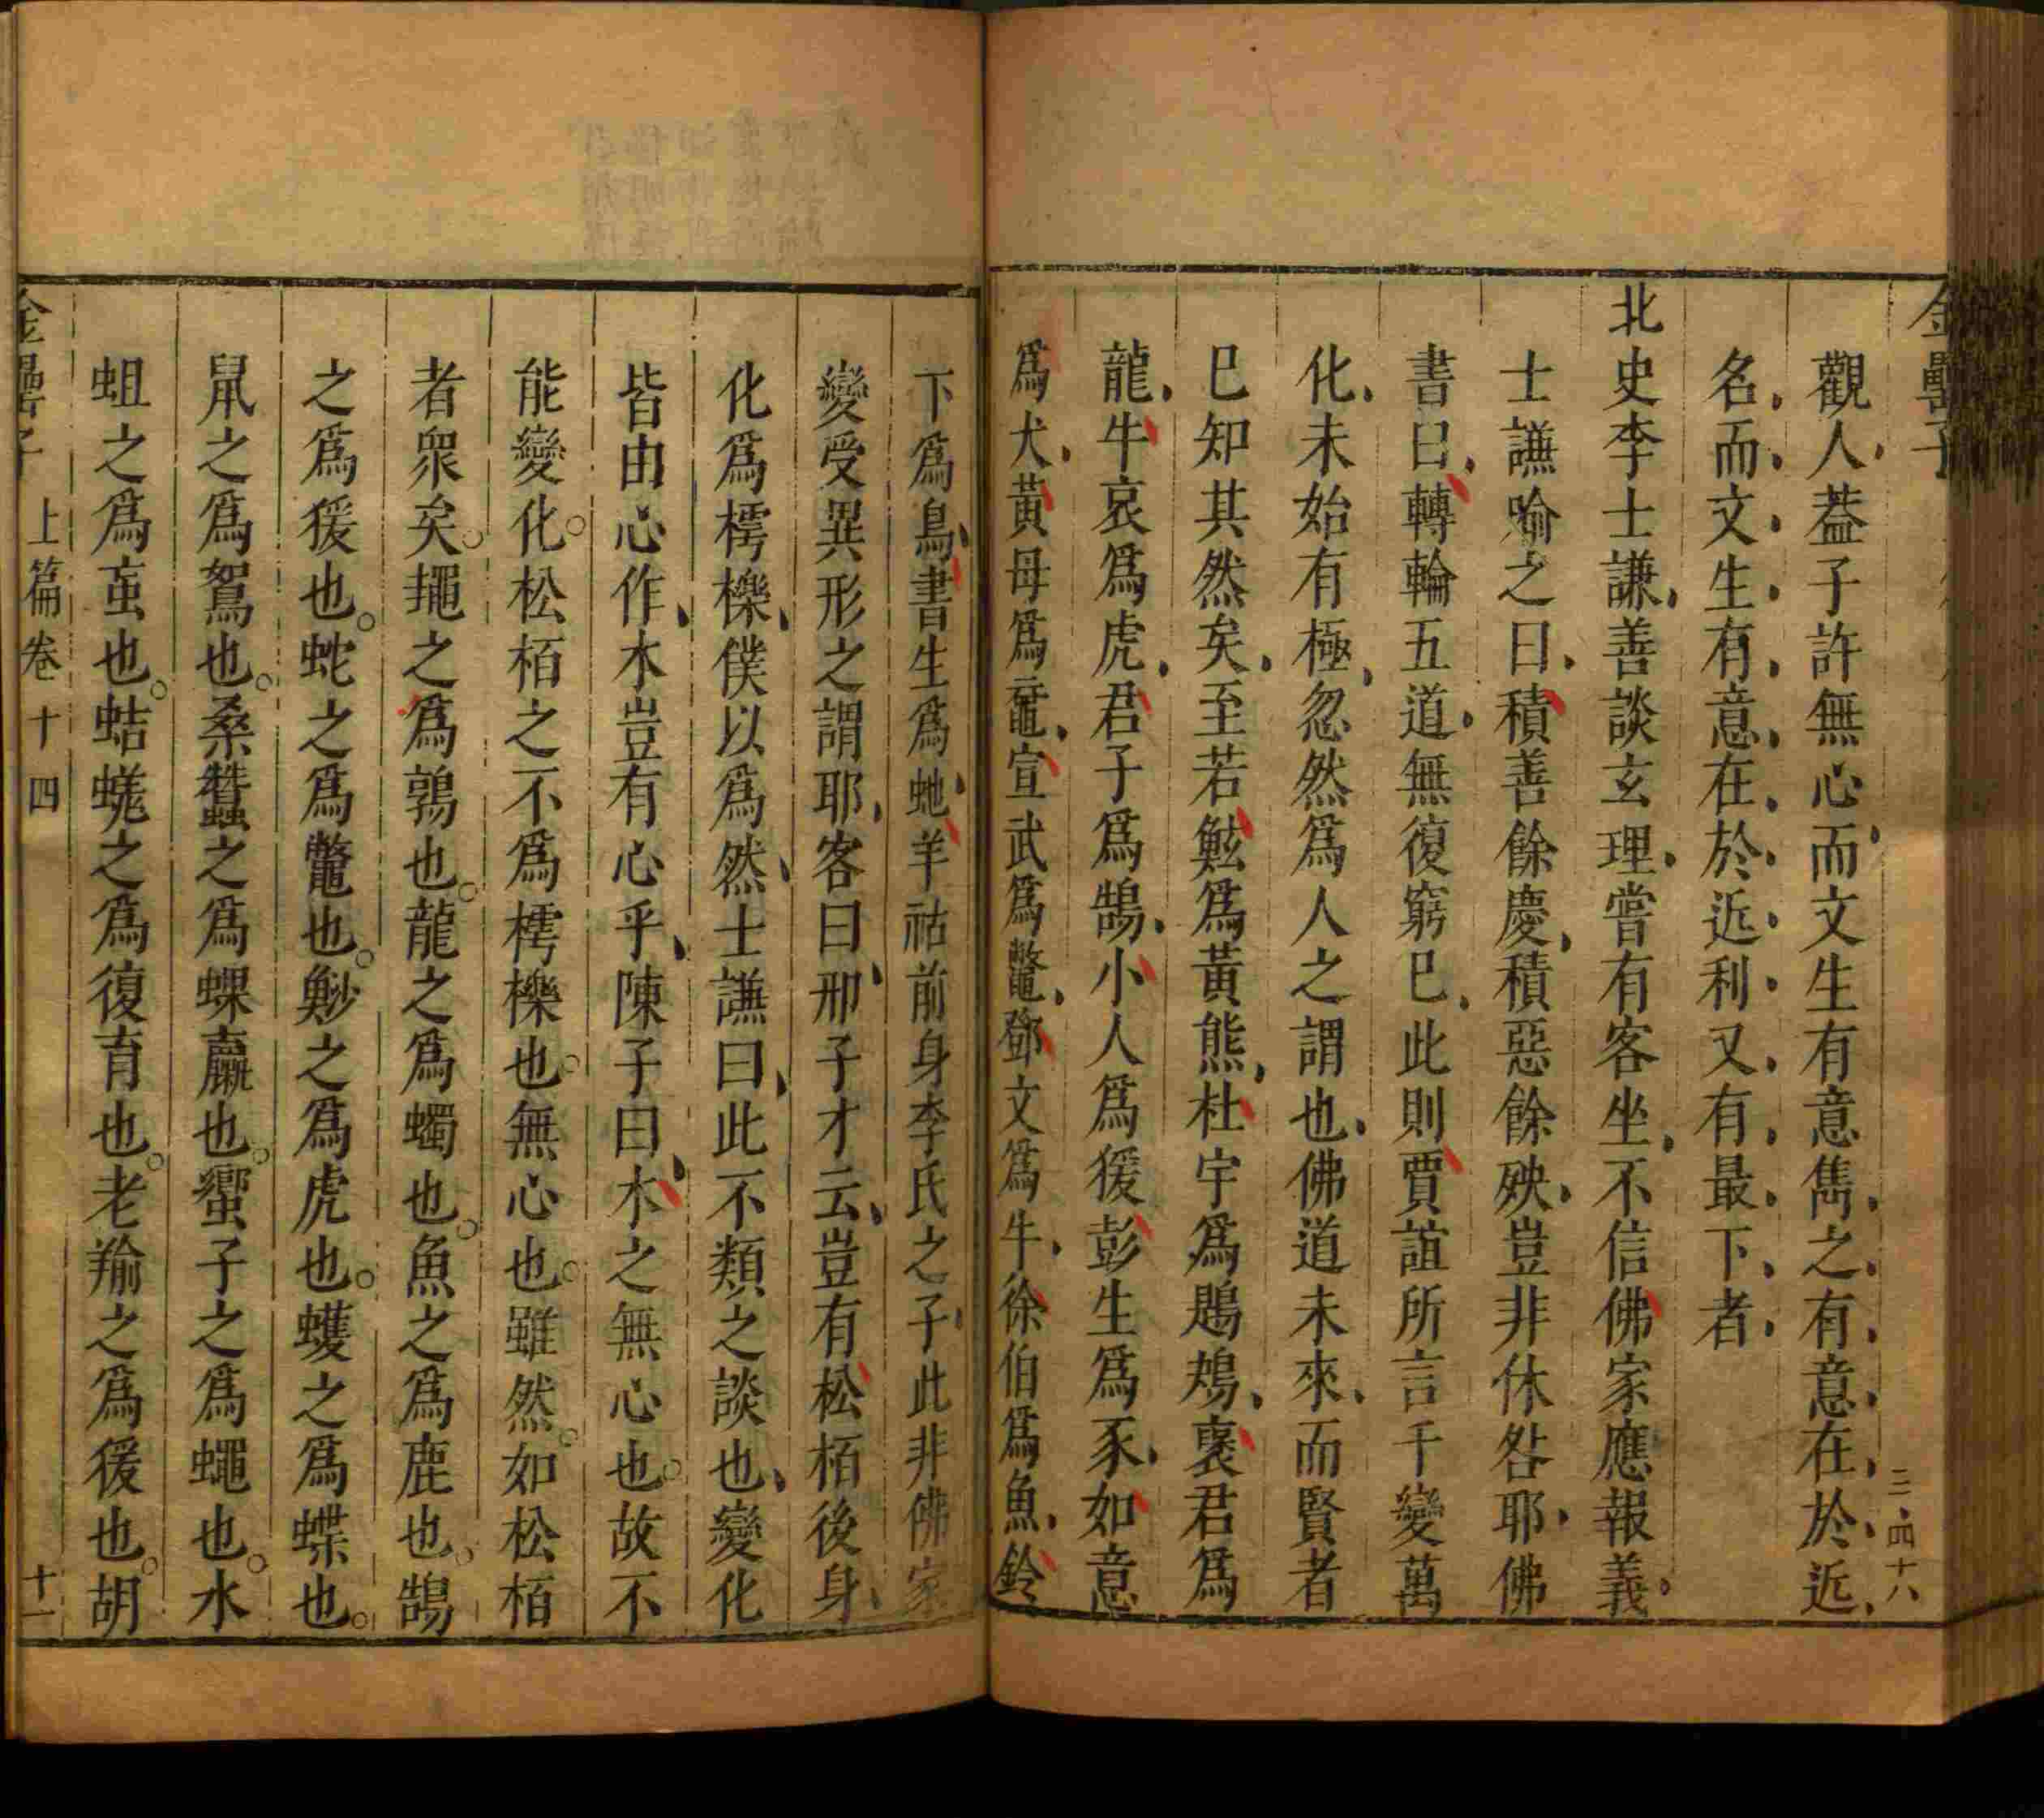 金罍子
三·四十八
觀人葢子許無心而文生有意雋之有意在於近
名而文生有意在於近利又有最下者
北史李士謙善談玄理嘗有客坐不信佛家應報義
士謙喻之曰積善餘慶積惡餘殃豈非休咎耶佛
書曰轉輪五道無復窮巳此則賈誼所言千變萬
化未始有極忽然為人之謂也佛道未來而賢者
巳知其然矣至若鮌為黃熊杜宇為鶗鴂褒君為
龍牛哀為虎君子為鵠小人為猨彭生為豕如意
為犬黃母為黿宣武為鼈鄧文為牛徐伯為魚鈴
下為烏書生為虵羊祜前身李氏之子此非佛家
變受異形之謂耶客曰邢子才云豈有松栢後身
化為樗櫟僕以為然士謙曰此不類之談也變化
皆由心作木豈有心乎陳子曰木之無心也故不
能變化松栢之不為樗櫟也無心也雖然如松栢
者衆矣䵷之為鶉也龍之為蠋也魚之為鹿也鵠
之為猨也蛇之為鼈也魦之為虎也蠖之為蝶也
鼠之為鴽也桑蠶之為蜾蠃也蠁子之為蠅也水
蛆之為䖟也蛣蜣之為復育也老羭之為猨也胡
金罍子 上篇卷十四 十一